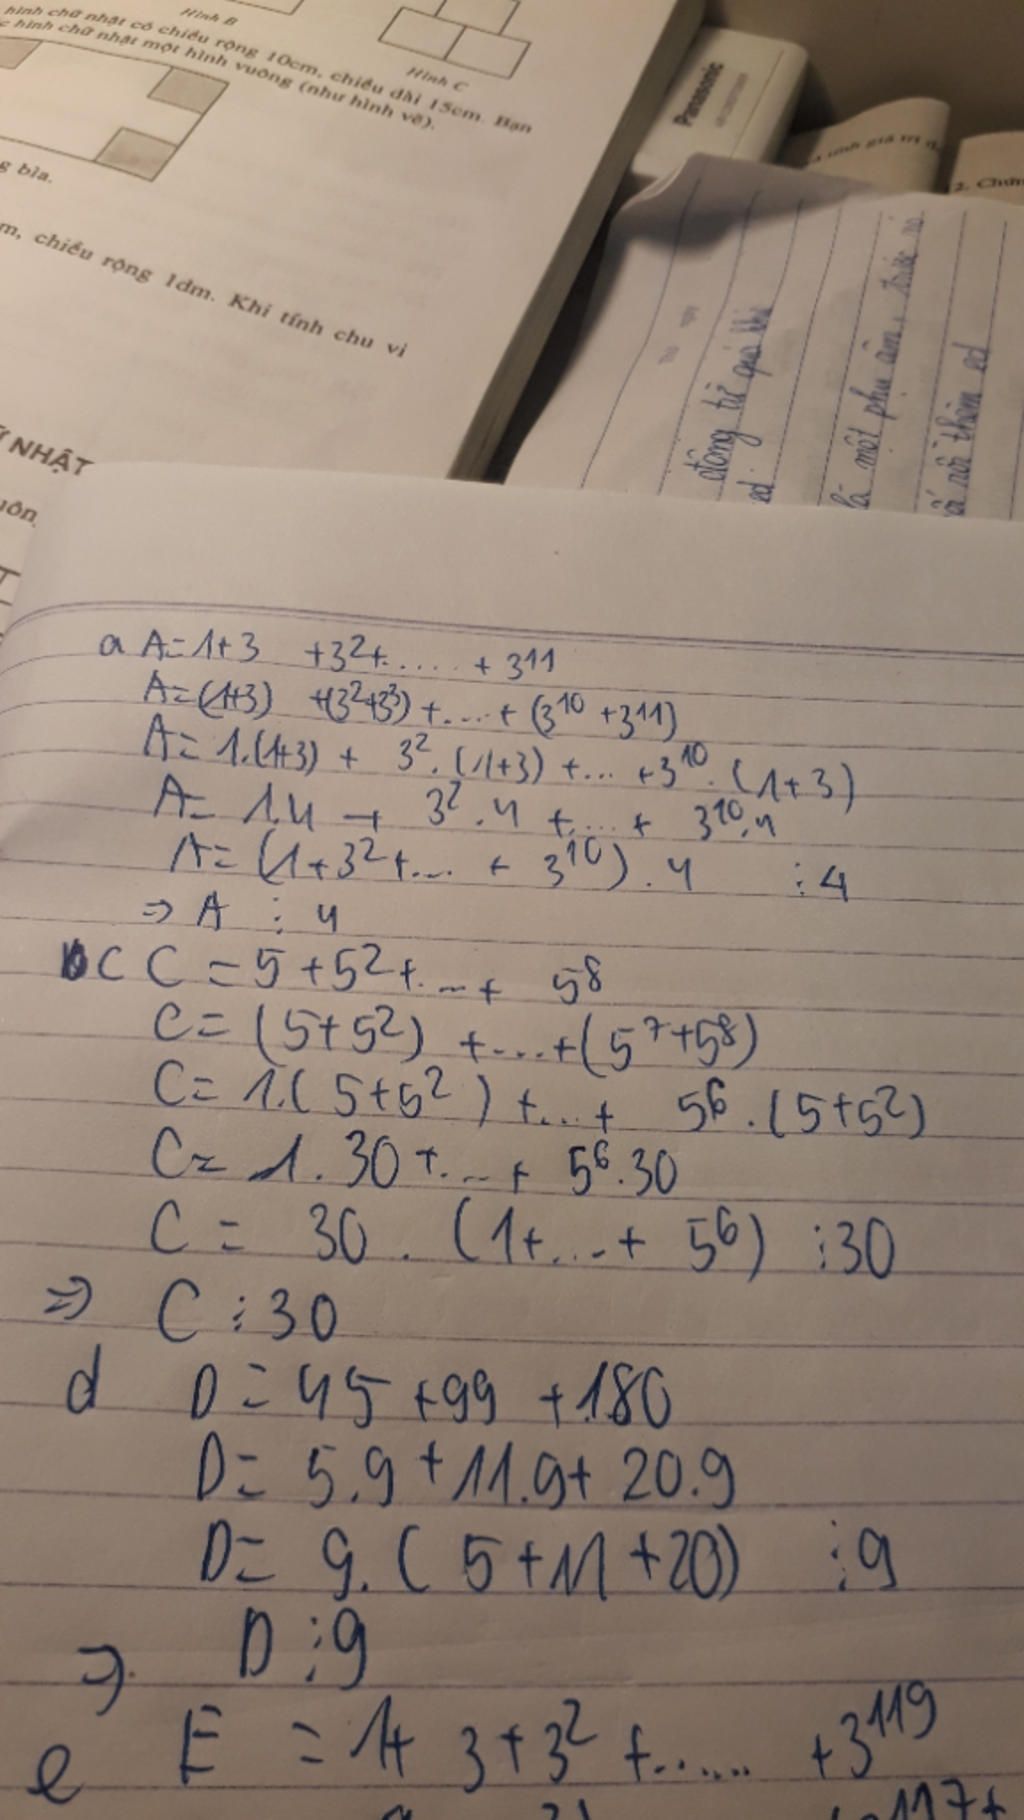 Hình B
hình chữ nhật có chiều rộng 10cm, chiều dài 15cm. Bạn
hình chữ nhật một hình vuông (như hình vẽ).
Hình C
bìa.
m, chiều rộng 1dm. Khi tính chu vi
NHẬT
Panasonic
tính giá trị
2. Chứn
động từ quá khứ
ed
là một phụ âm, trước nó
rồi thêm ed
a A=1+3 +3²+..... + 3¹¹
A=(1+3) +(3²+3³) +....+ (3¹⁰ +3¹¹)
A= 1.(1+3) + 3².(1+3) +... +3¹⁰.(1+3)
A= 1.4 + 3².4 +...+ 3¹⁰.4
A= (1+3²+... + 3¹⁰).4 ⋮4
=> A ⋮ 4
c C = 5+5²+...+ 5⁸
C= (5+5²) +....+(5⁷+5⁸)
C= 1.(5+5²) +...+ 5⁶.(5+5²)
C= 1.30+...+ 5⁶.30
C = 30 . (1+...+ 5⁶) ⋮30
=> C ⋮30
d D=45+99+180
D= 5.9+11.9+ 20.9
D= 9.(5+11+20) ⋮9
=> D ⋮9
e E = 1+ 3+3² +...... +3¹¹⁹